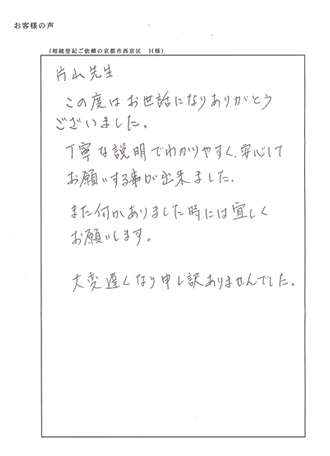 お客様の声
（相続登記ご依頼の京都市西京区　H様）
片山先生
この度はお世話になりありがとう
ございました。
丁寧な説明でわかりやすく、安心して
お願いする事が出来ました。
また何かありました時には宜しく
お願いします。
大変遅くなり申し訳ありませんでした。